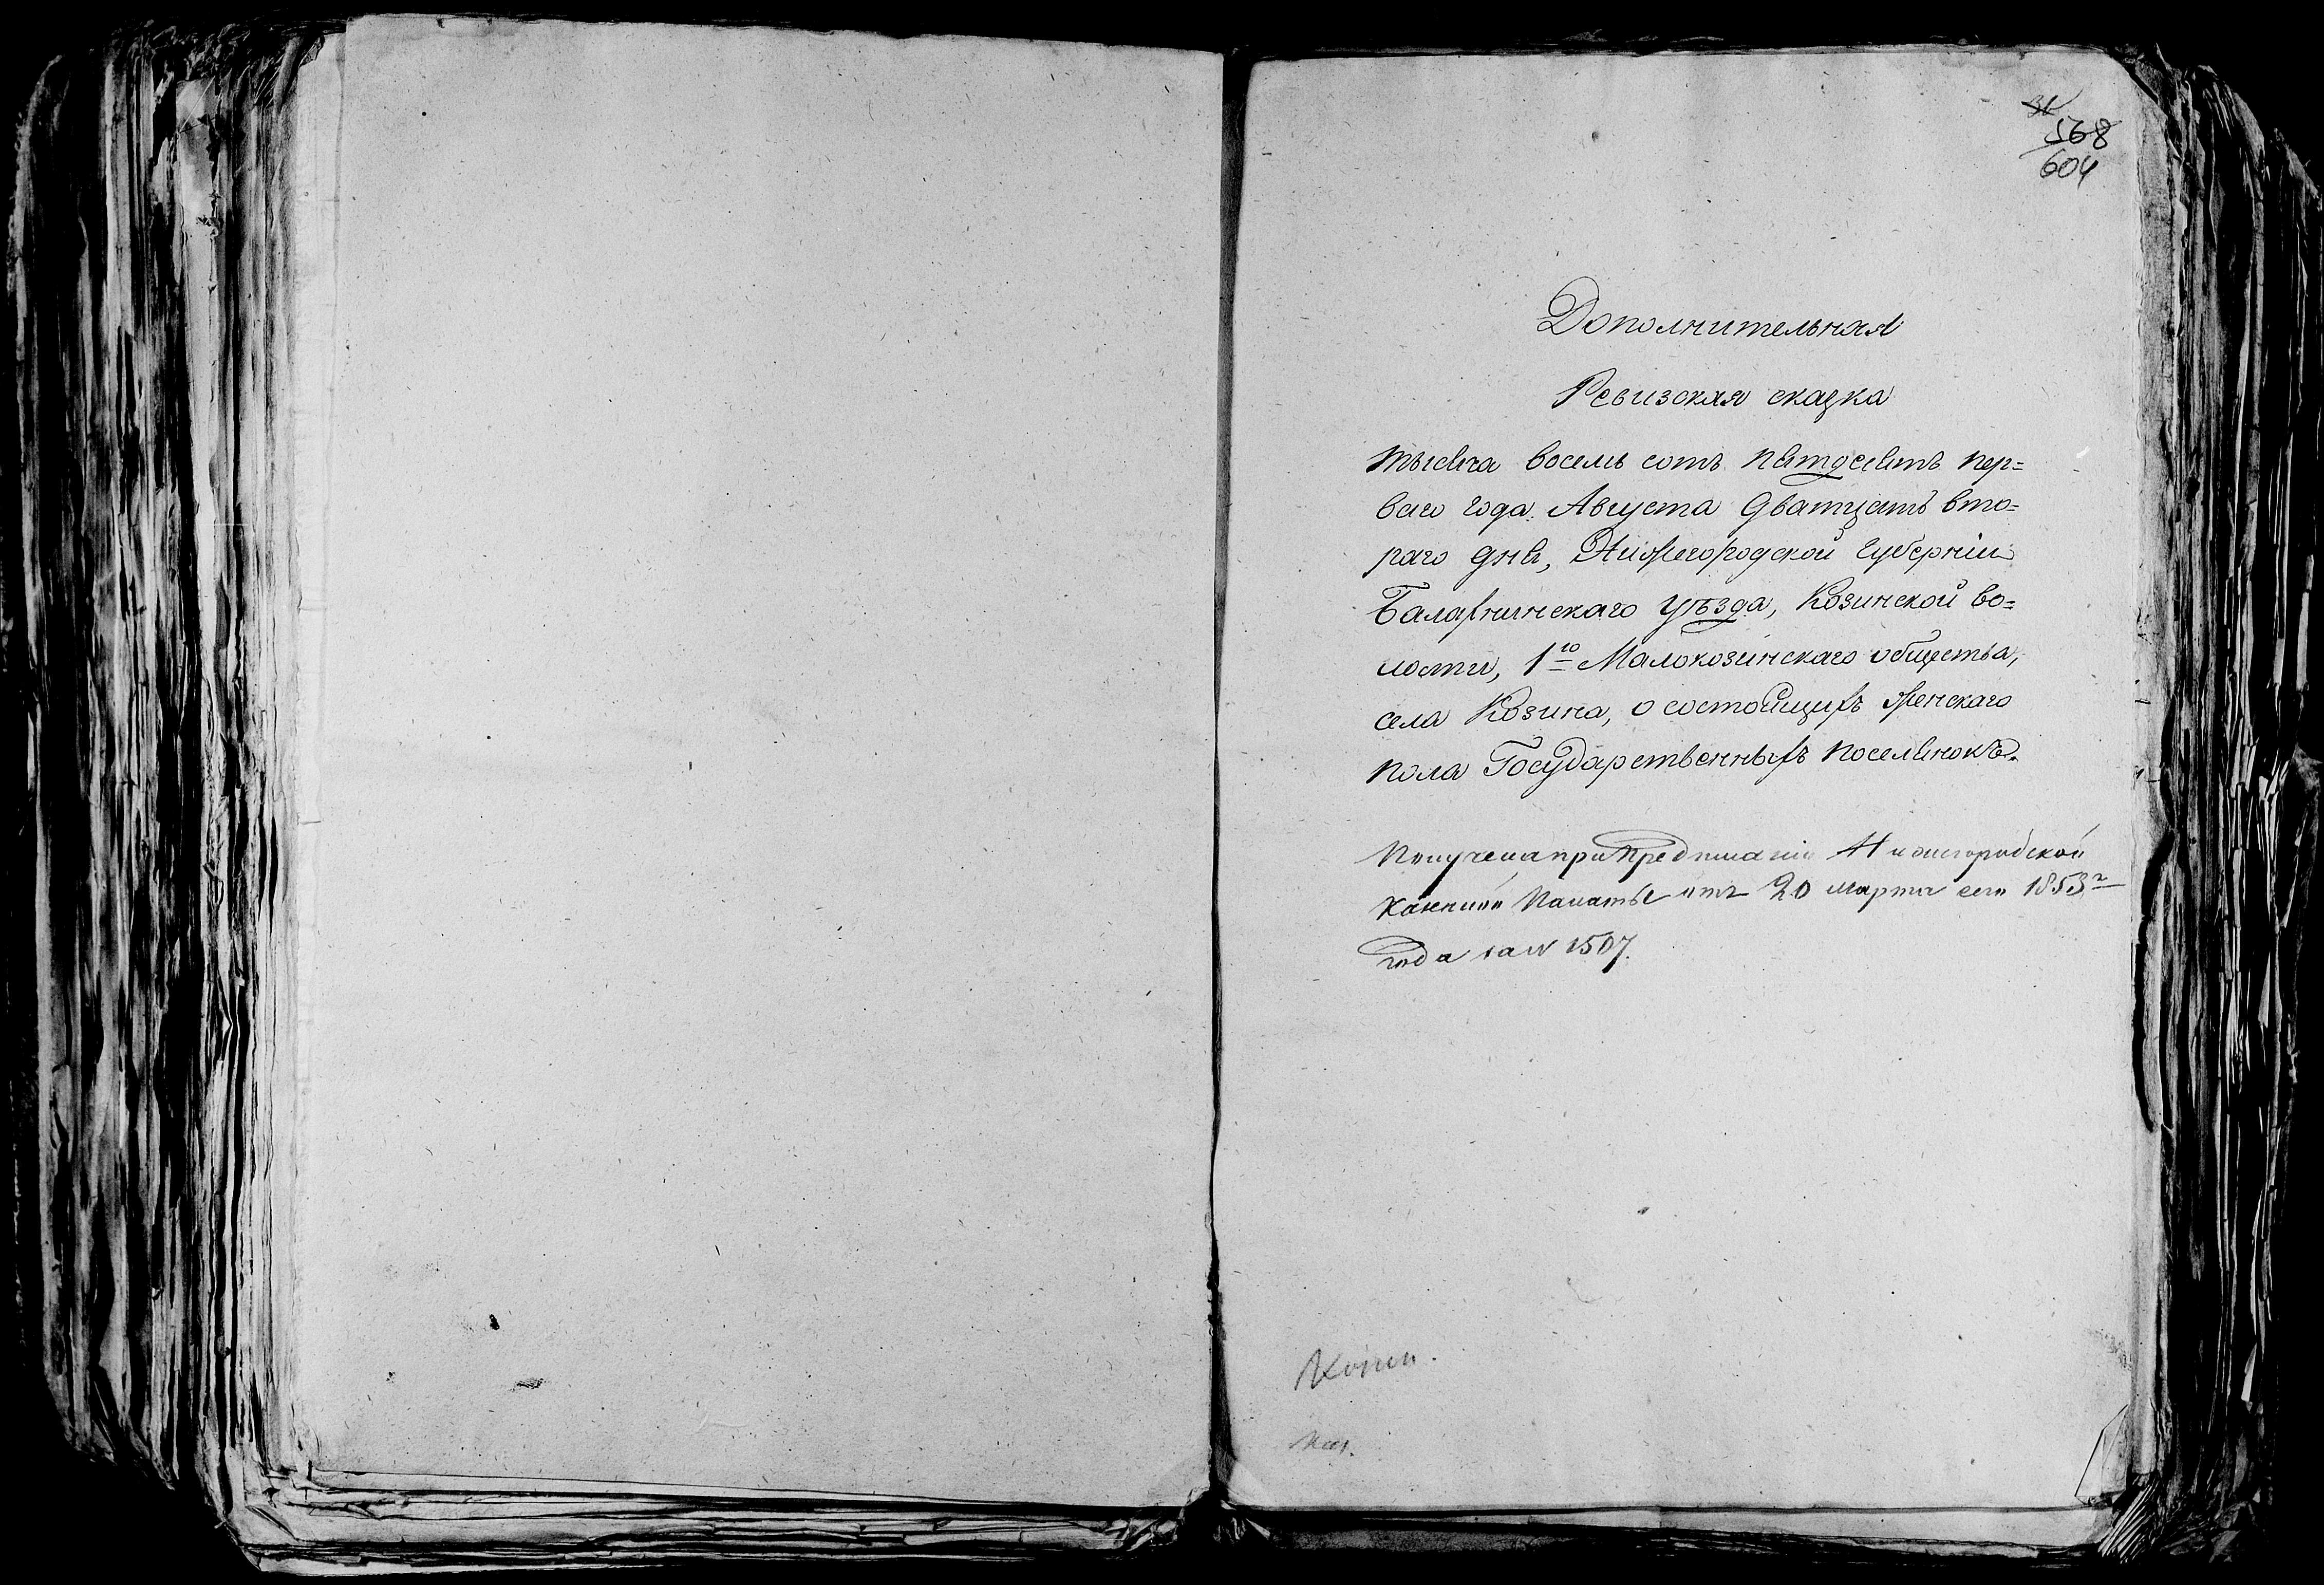 568
604
Дополнительная
Ревизская сказка
тысяча восемь сотъ пятдесятъ пер=
ваго года Августа дватцать вто=
раго дня, Нижегородской Губерніи
Балахнинскаго уѣзда, Козинской во=
лости, 1го Малокозинскаго общества,
села Козина, о состоящихъ женскаго
пола Государственныхъ поселянокъ.
Получена при предписаніи Нижегородской
Казенной Палаты отъ 20 марта сего 1853г
года за N 1507.